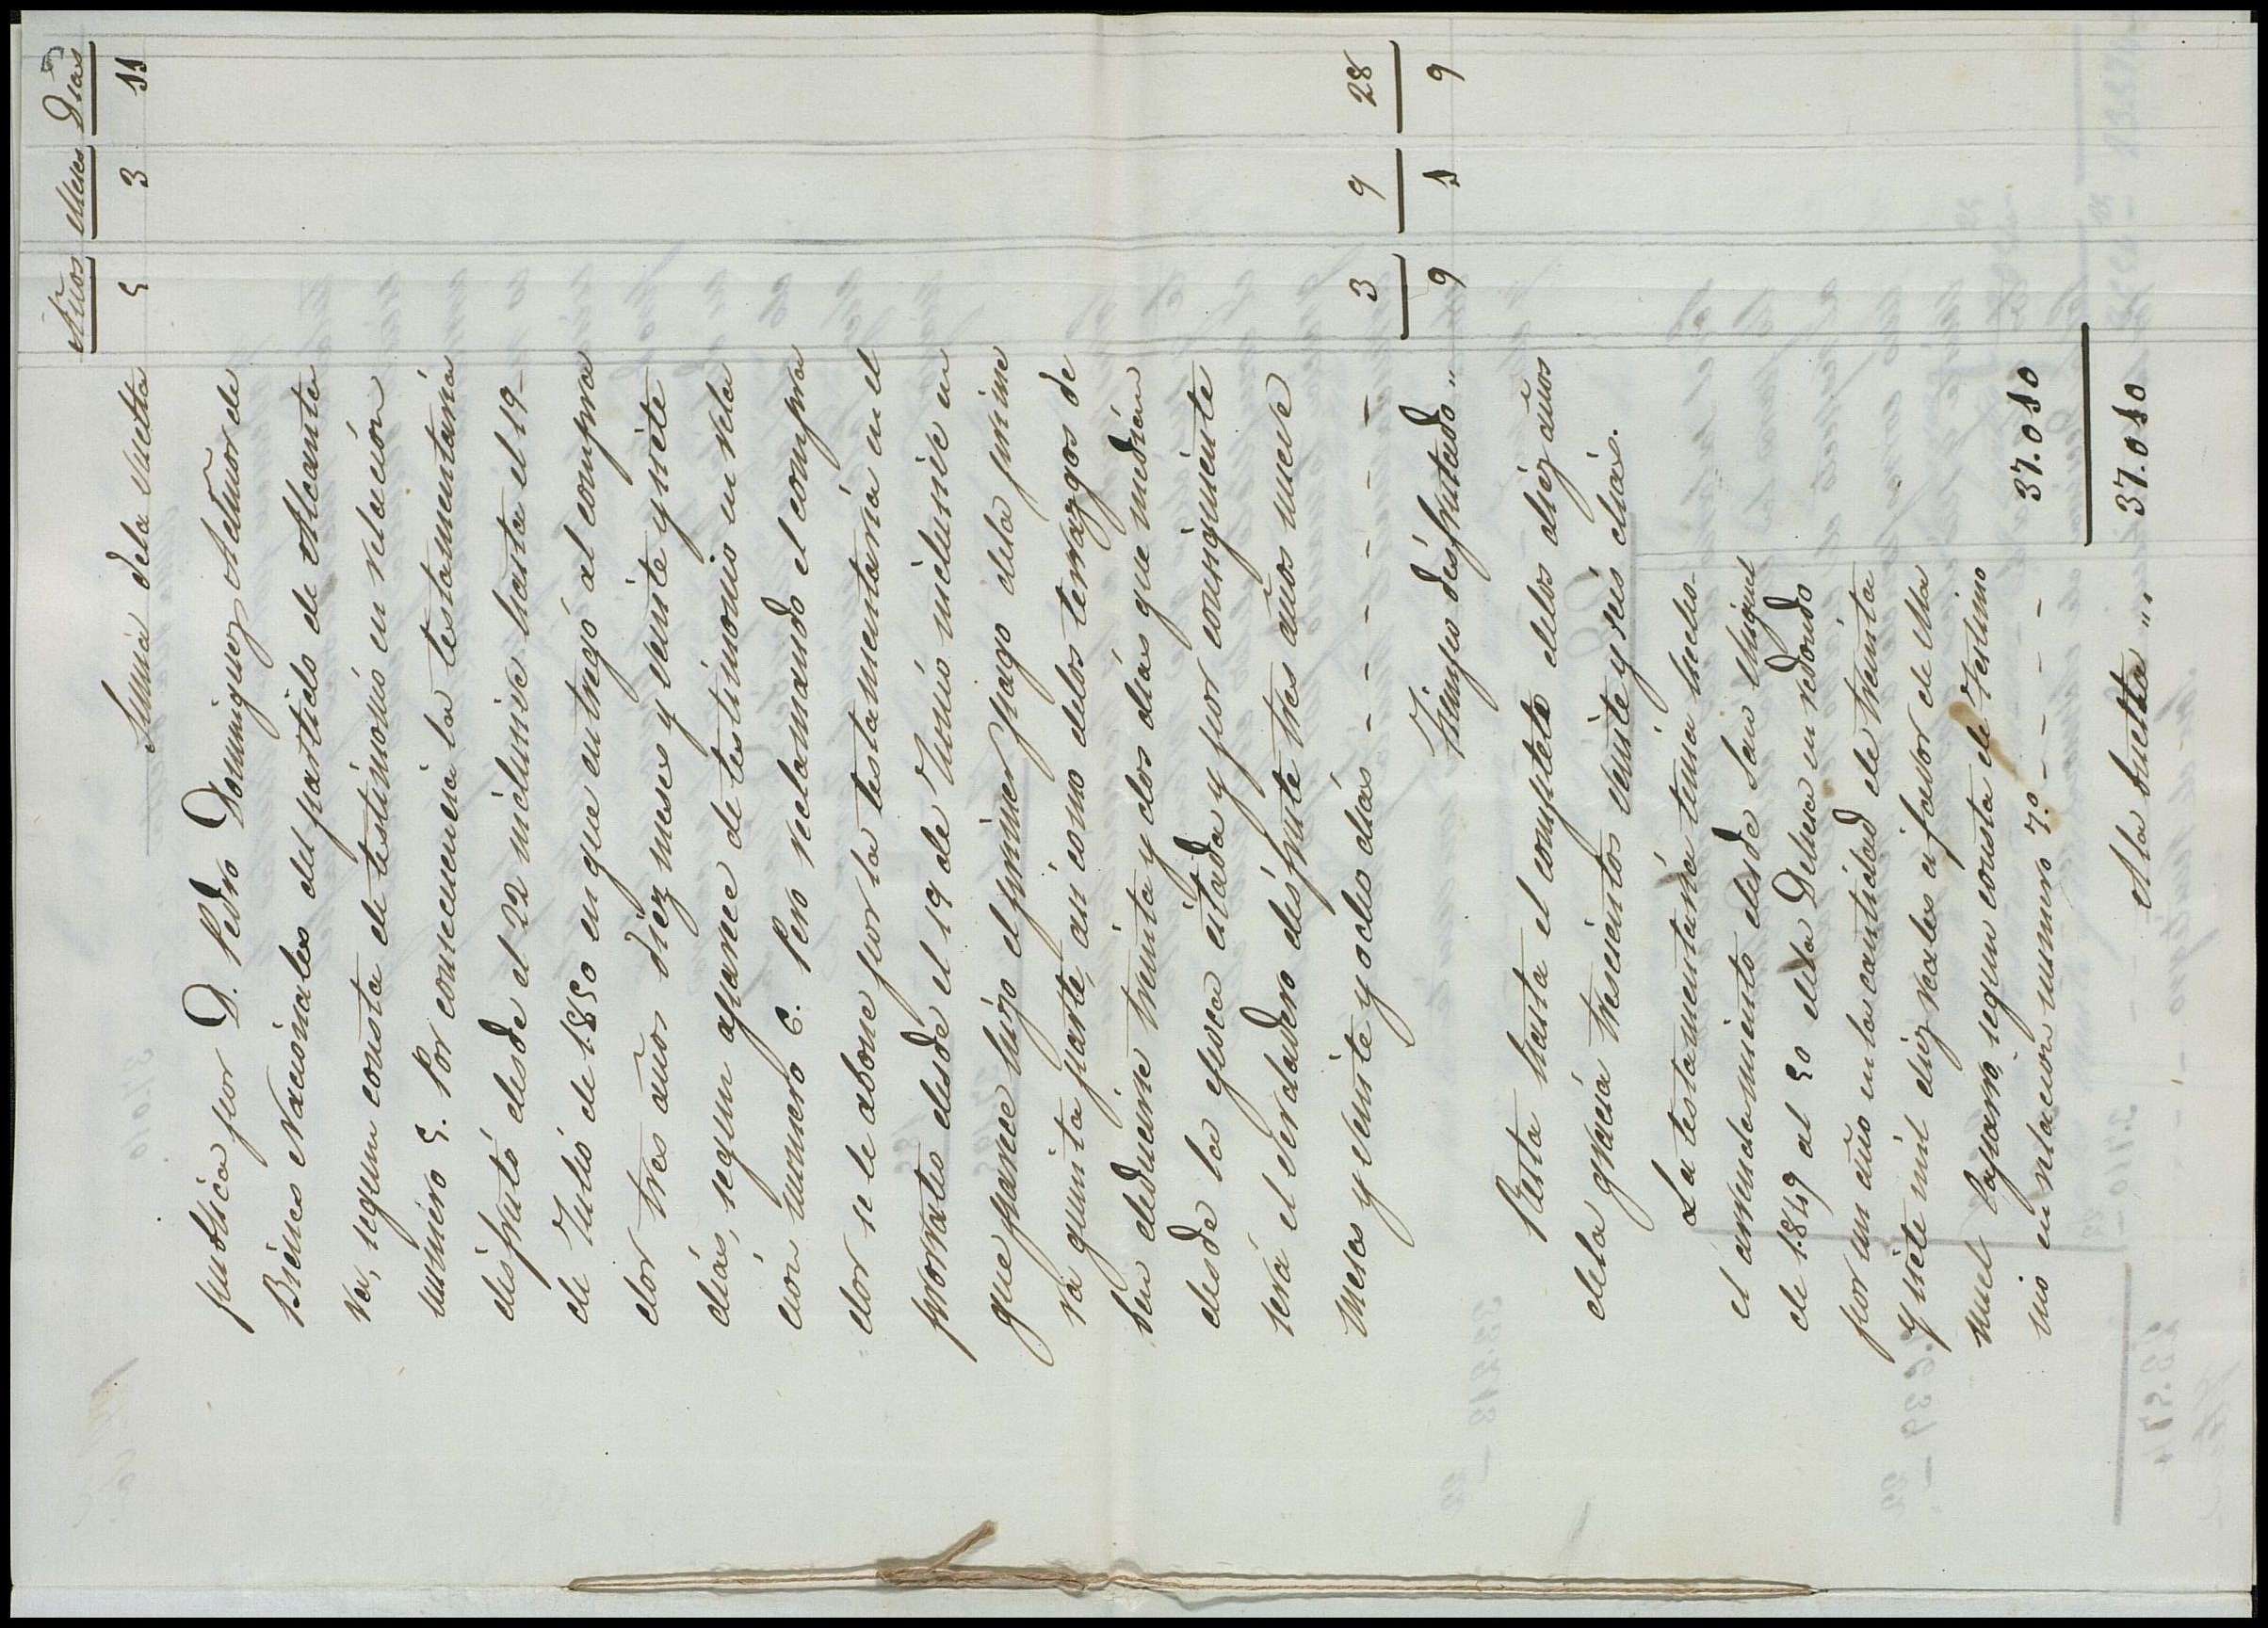 Años Meses Dias
Suma dela vuelta 5 3 11
publica por D. Pedro Dominguez Actuor de
Bienes Nacionales del partido de Alcanta
ra, segun consta de testimonio en relacion
numero 5. Por consecuencia la testamentaria
disfrutó desde el 22 inclusive hasta el 19
de Julio de 1.850 en que entregó al compra
dor tres años diez meses y veinte y siete
dias, segun aparece de testimonio en rela
cion numero 6. Pero reclamando el compra
dor se le abone por la testamentaria en el
prorrateo desde el 19 de Junio inclusive en
que parece hizo el primer pago dela prime
ra quinta parte, asi como delos terrazgos de
ben deducirse treinta y dos dias que median
desde la epoca citada y por consiguiente
será el verdadero disfrute tres años nueve
meses y veinte y ocho dias - - - - - - 3 9 28
Tiempo disfrutado .. 9 1 9
Resta hasta el completo delos diez años
dela gracia trescientos veinte y seis dias.
La testamentaria tenia hecho
el arrendamiento desde San Miguel
de 1.849 al 50 dela Dehesa en redondo
por un año en la cantidad de treinta
y siete mil diez reales a favor de Ma
nuel segun consta de Testimo
nio en relacion numero 7.º - - - - - 37.010
A la vuelta .. 37.010